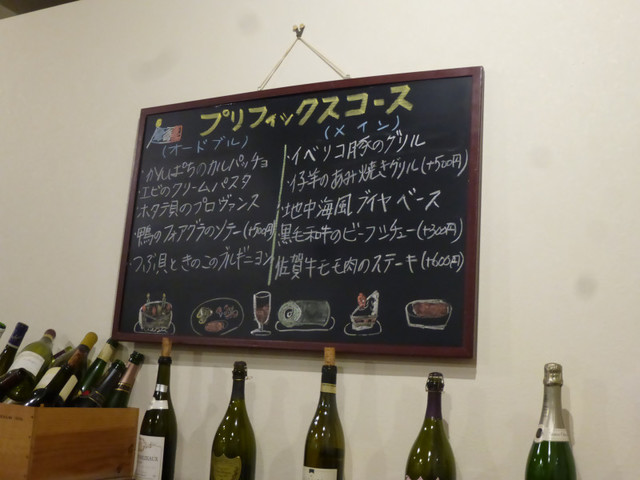 プリフィックスコース
(オードブル)
・かんぱちのカルパッチョ
・エビのクリームパスタ
・ホタテ貝のプロヴァンス
・鴨のフォアグラのソテー(+500円)
・つぶ貝ときのこのブルギニヨン
(メイン)
・イベリコ豚のグリル
・仔羊のあみ焼きグリル(+500円)
・地中海風ブイヤベース
・黒毛和牛のビーフシチュー(+300円)
・佐賀牛モモ肉のステーキ(+600円)